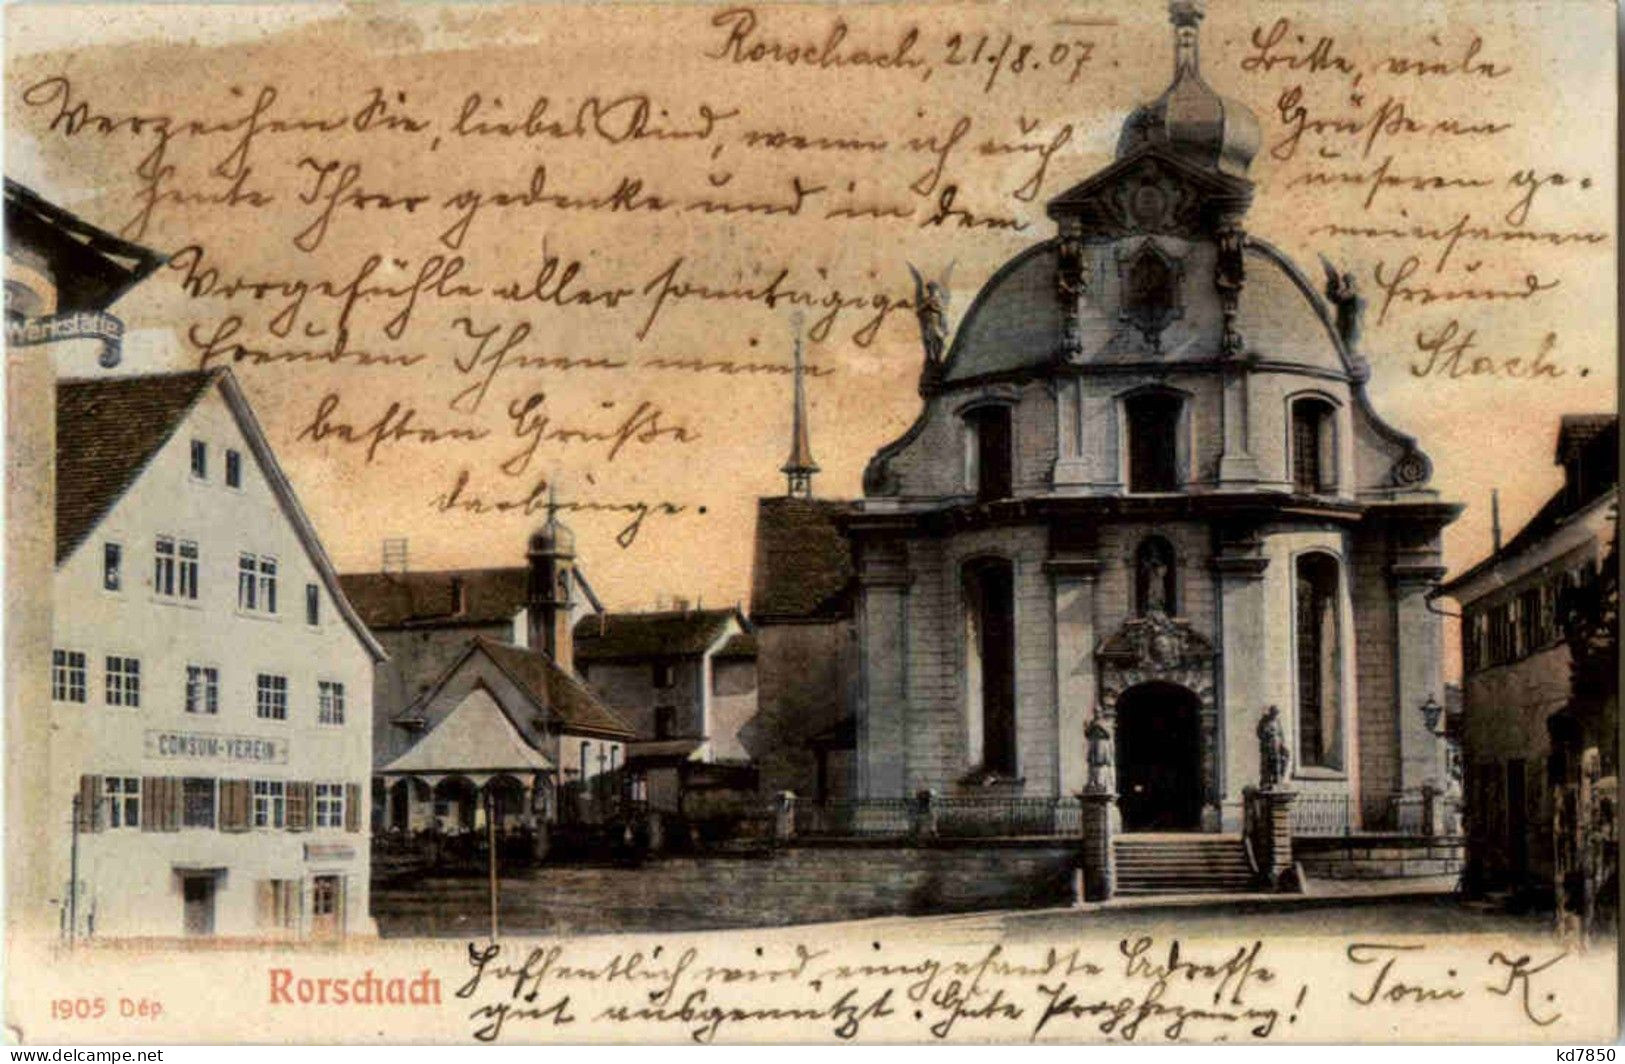 Rorschach, 21./8.07.
Verzeihen Sie, liebes Kind, wenn ich auch
heute Ihrer gedenke und in dem
Vorgefühle aller sonntägige
Freuden Ihnen meine
besten Grüße
darbringe.
Bitte, viele
Grüße an
unseren ge-
meinsamen
Freund
Stach.
Werkstätte
CONSUM-VEREIN
Hoffentlich wird eingesandte Adresse
gut ausgenützt. Gute Prophezeiung!
Toni K.
Rorschach
1905 Dép.
kd7850